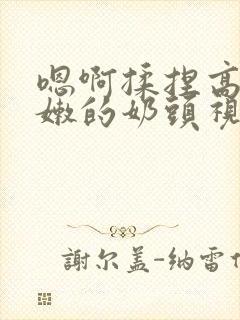 嗯啊揉捏高
嫩的奶頭視
謝尔盖-纳雷